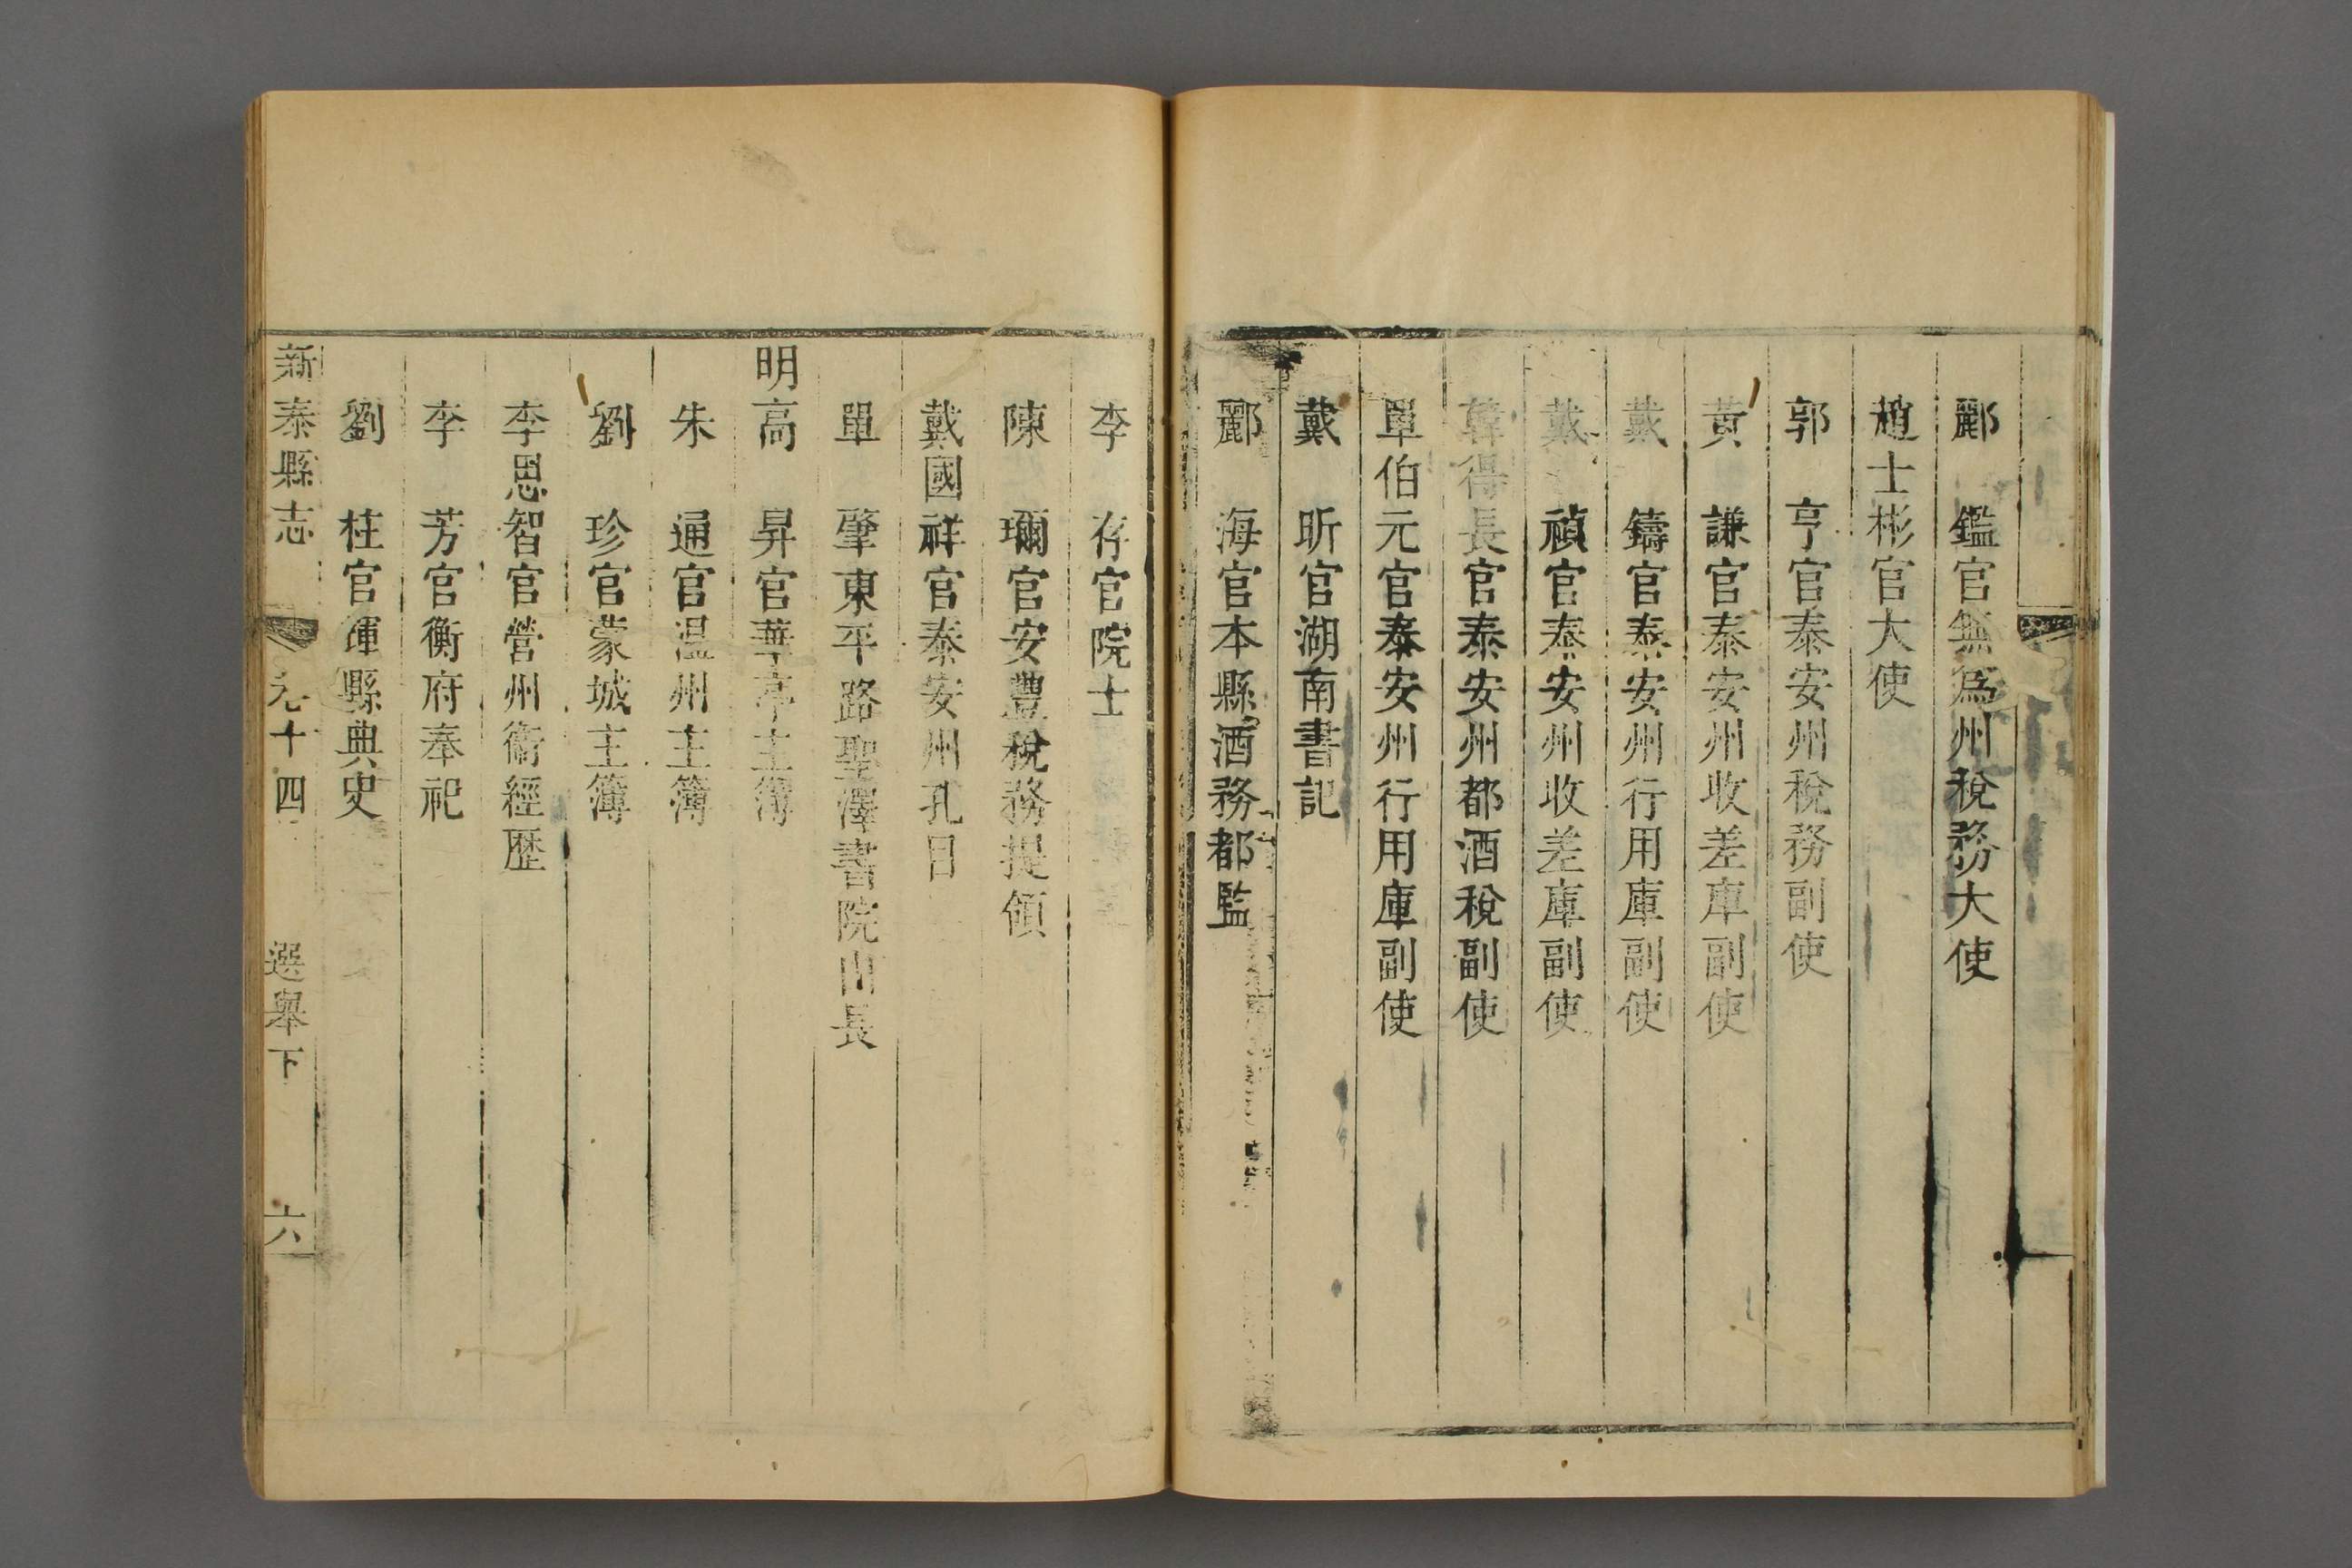 酈　鑑官無爲州稅務大使
趙士彬官大使
郭　亨官泰安州稅務副使
黃　謙官泰安州收差庫副使
戴　鑄官泰安州行用庫副使
戴　禎官泰安州收差庫副使
韓得長官泰安州都酒稅副使
單伯元官泰安州行用庫副使
戴　昕官湖南書記
酈　海官本縣酒務都監
李　存官院士
陳　瓓官安豐稅務提領
戴國祥官泰安州孔目
單　肇東平路聖澤書院山長
明高　昇官華亭主簿
朱　通官温州主簿
劉　珍官蒙城主簿
李思智官營州衛經歷
李　芳官衡府奉祀
劉　柱官渾縣典史
新泰縣志　卷十四　選舉下　六